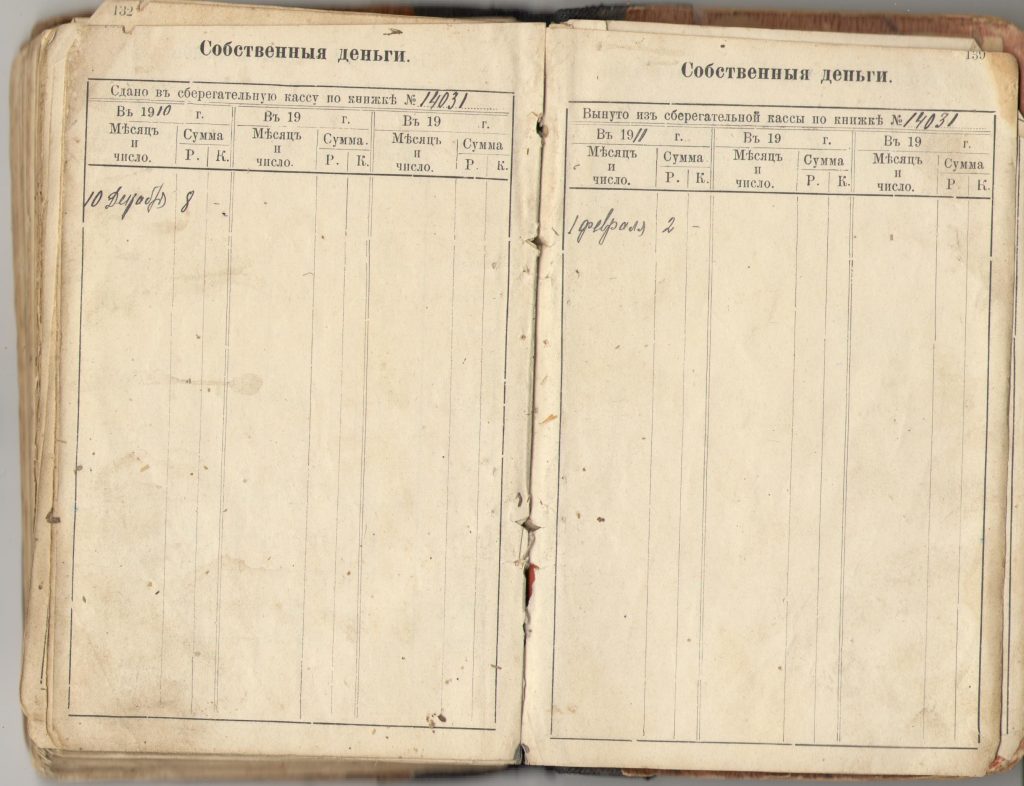 132
Собственныя деньги.
Сдано въ сберегательную кассу по книжкѣ № 14031
Въ 1910 г. Въ 19 г. Въ 19 г.
Мѣсяцъ и число. Сумма Р. К. Мѣсяцъ и число. Сумма. Р. К. Мѣсяцъ и число. Сумма Р. К.
10 Декабря 8 -
139
Собственныя деньги.
Вынуто изъ сберегательной кассы по книжкѣ № 14031
Въ 1911 г. Въ 19 г. Въ 19 г.
Мѣсяцъ и число. Сумма Р. К. Мѣсяцъ и число. Сумма Р. К. Мѣсяцъ и число. Сумма Р. К.
1 февраля 2 -